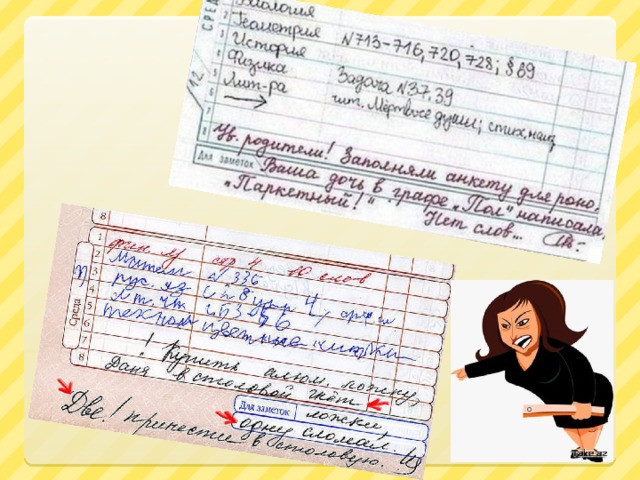 СРЕДА
Биология
Геометрия N713-716, 720, 728; § 89
История
Физика Задача N37.39
Лит-ра чит. Мёртвые души; стих. наиз.
12
Ув. родители! Заполняли анкету для роно.
Для заметок Ваша дочь в графе „Пол" написала,
„Паркетный!"
Нет слов...
8
1 физ. стр 4 10 слов
2 Матем N 336
3 рус. яз с 78 упр 4,
4 лит. чт
5 технол цветные
6
7 ! Купить алюм. ложку,
8 Даня в столовой гнёт
Для заметок ложки,
одну сломал.
Две! принести в столовую.
Среда
fake.az